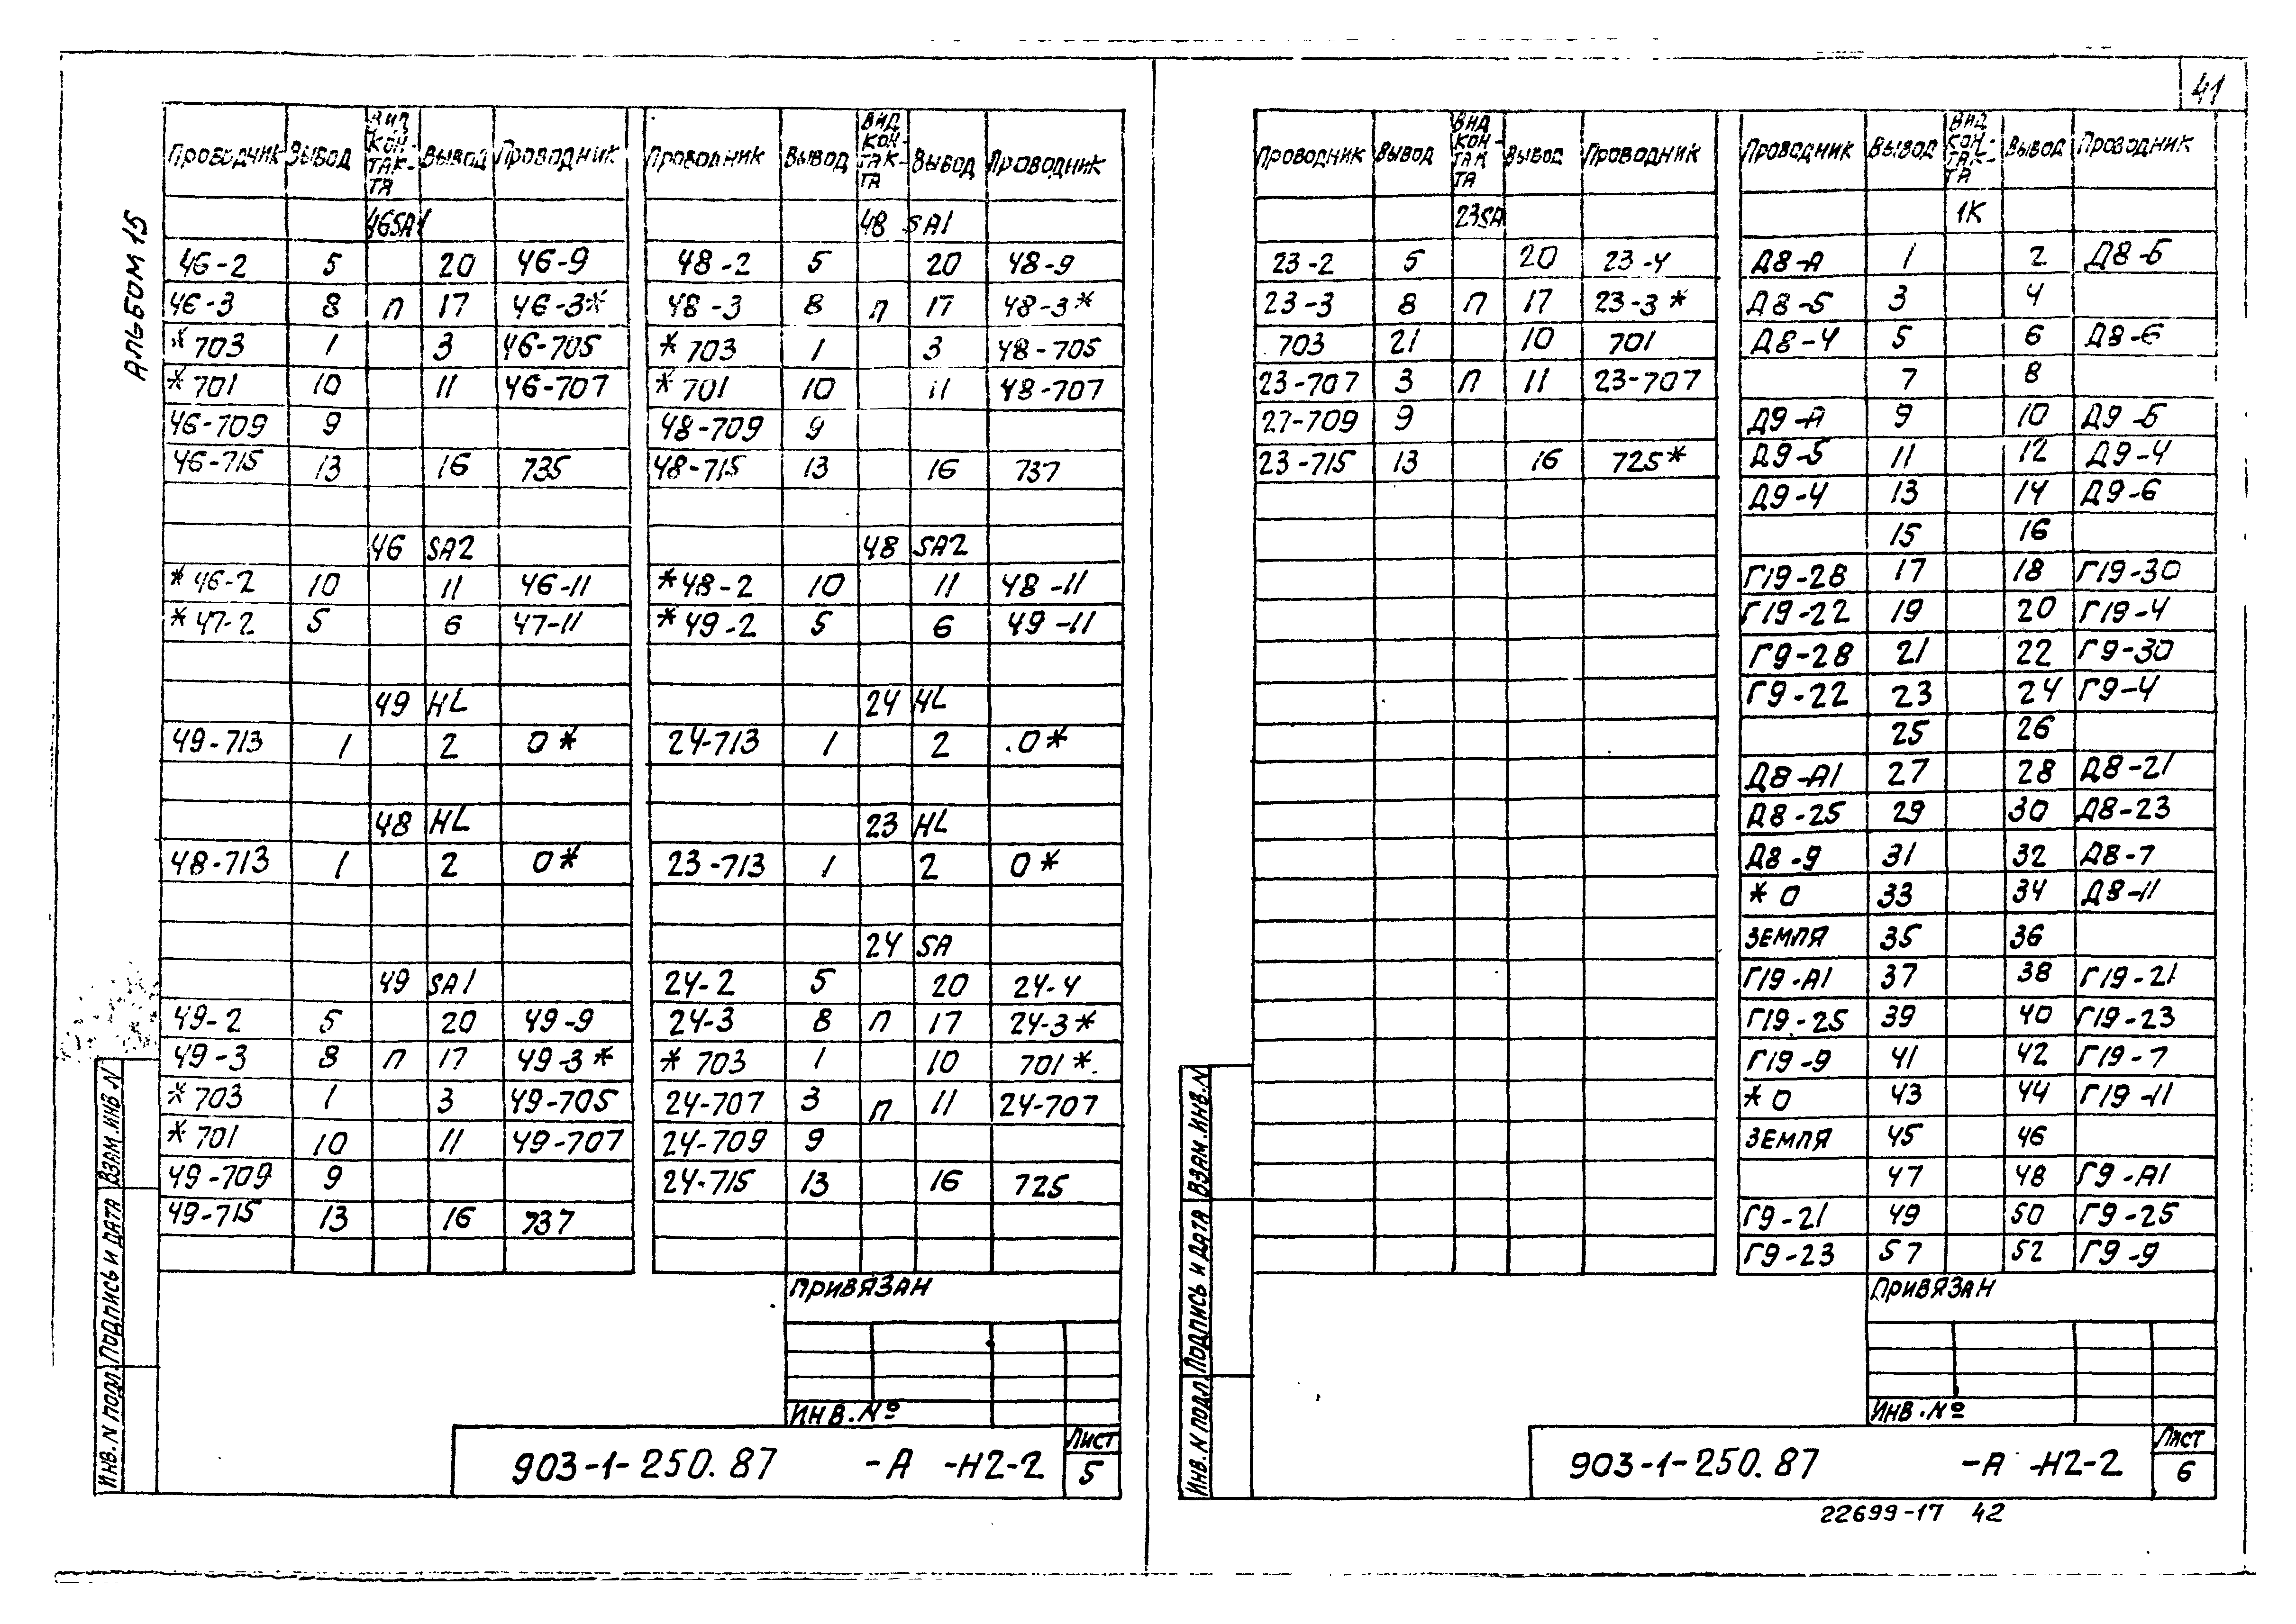 41
АЛЬБОМ 15
Проводник Вывод Вид контакта Вывод Проводник
46SA1
46-2 5 20 46-9
46-3 8 П 17 46-3*
*703 1 3 46-705
*701 10 11 46-707
46-709 9
46-715 13 16 735
46 SA2
*46-2 10 11 46-11
*47-2 5 6 47-11
49 HL
49-713 1 2 0*
48 HL
48-713 1 2 0*
49 SA1
49-2 5 20 49-9
49-3 8 П 17 49-3*
*703 1 3 49-705
*701 10 11 49-707
49-709 9
49-715 13 16 737
Проводник Вывод Вид контакта Вывод Проводник
48 SA1
48-2 5 20 48-9
48-3 8 П 17 48-3*
*703 1 3 48-705
*701 10 11 48-707
48-709 9
48-715 13 16 737
48 SA2
*48-2 10 11 48-11
*49-2 5 6 49-11
24 HL
24-713 1 2 0*
23 HL
23-713 1 2 0*
24 SA
24-2 5 20 24-4
24-3 8 П 17 24-3*
*703 1 10 701*
24-707 3 П 11 24-707
24-709 9
24-715 13 16 725
ПРИВЯЗАН
ИНВ. №
903-1-250.87 -А -Н2-2
Лист
5
Инв. N подл. Подпись и дата Взам. инв. N
Проводник Вывод Вид контакта Вывод Проводник
23SA
23-2 5 20 23-4
23-3 8 П 17 23-3*
703 21 10 701
23-707 3 П 11 23-707
27-709 9
23-715 13 16 725*
Проводник Вывод Вид контакта Вывод Проводник
1К
Д8-А 1 2 Д8-Б
Д8-5 3 4
Д8-4 5 6 Д8-6
7 8
Д9-А 9 10 Д9-Б
Д9-5 11 12 Д9-4
Д9-4 13 14 Д9-6
15 16
Г19-28 17 18 Г19-30
Г19-22 19 20 Г19-4
Г9-28 21 22 Г9-30
Г9-22 23 24 Г9-4
25 26
Д8-А1 27 28 Д8-21
Д8-25 29 30 Д8-23
Д8-9 31 32 Д8-7
*0 33 34 Д8-11
ЗЕМЛЯ 35 36
Г19-А1 37 38 Г19-21
Г19-25 39 40 Г19-23
Г19-9 41 42 Г19-7
*0 43 44 Г19-11
ЗЕМЛЯ 45 46
47 48 Г9-А1
Г9-21 49 50 Г9-25
Г9-23 57 52 Г9-9
ПРИВЯЗАН
ИНВ. №
903-1-250.87 -А -Н2-2
Лист
6
Инв. N подл. Подпись и дата Взам. инв. N
22699-17 42